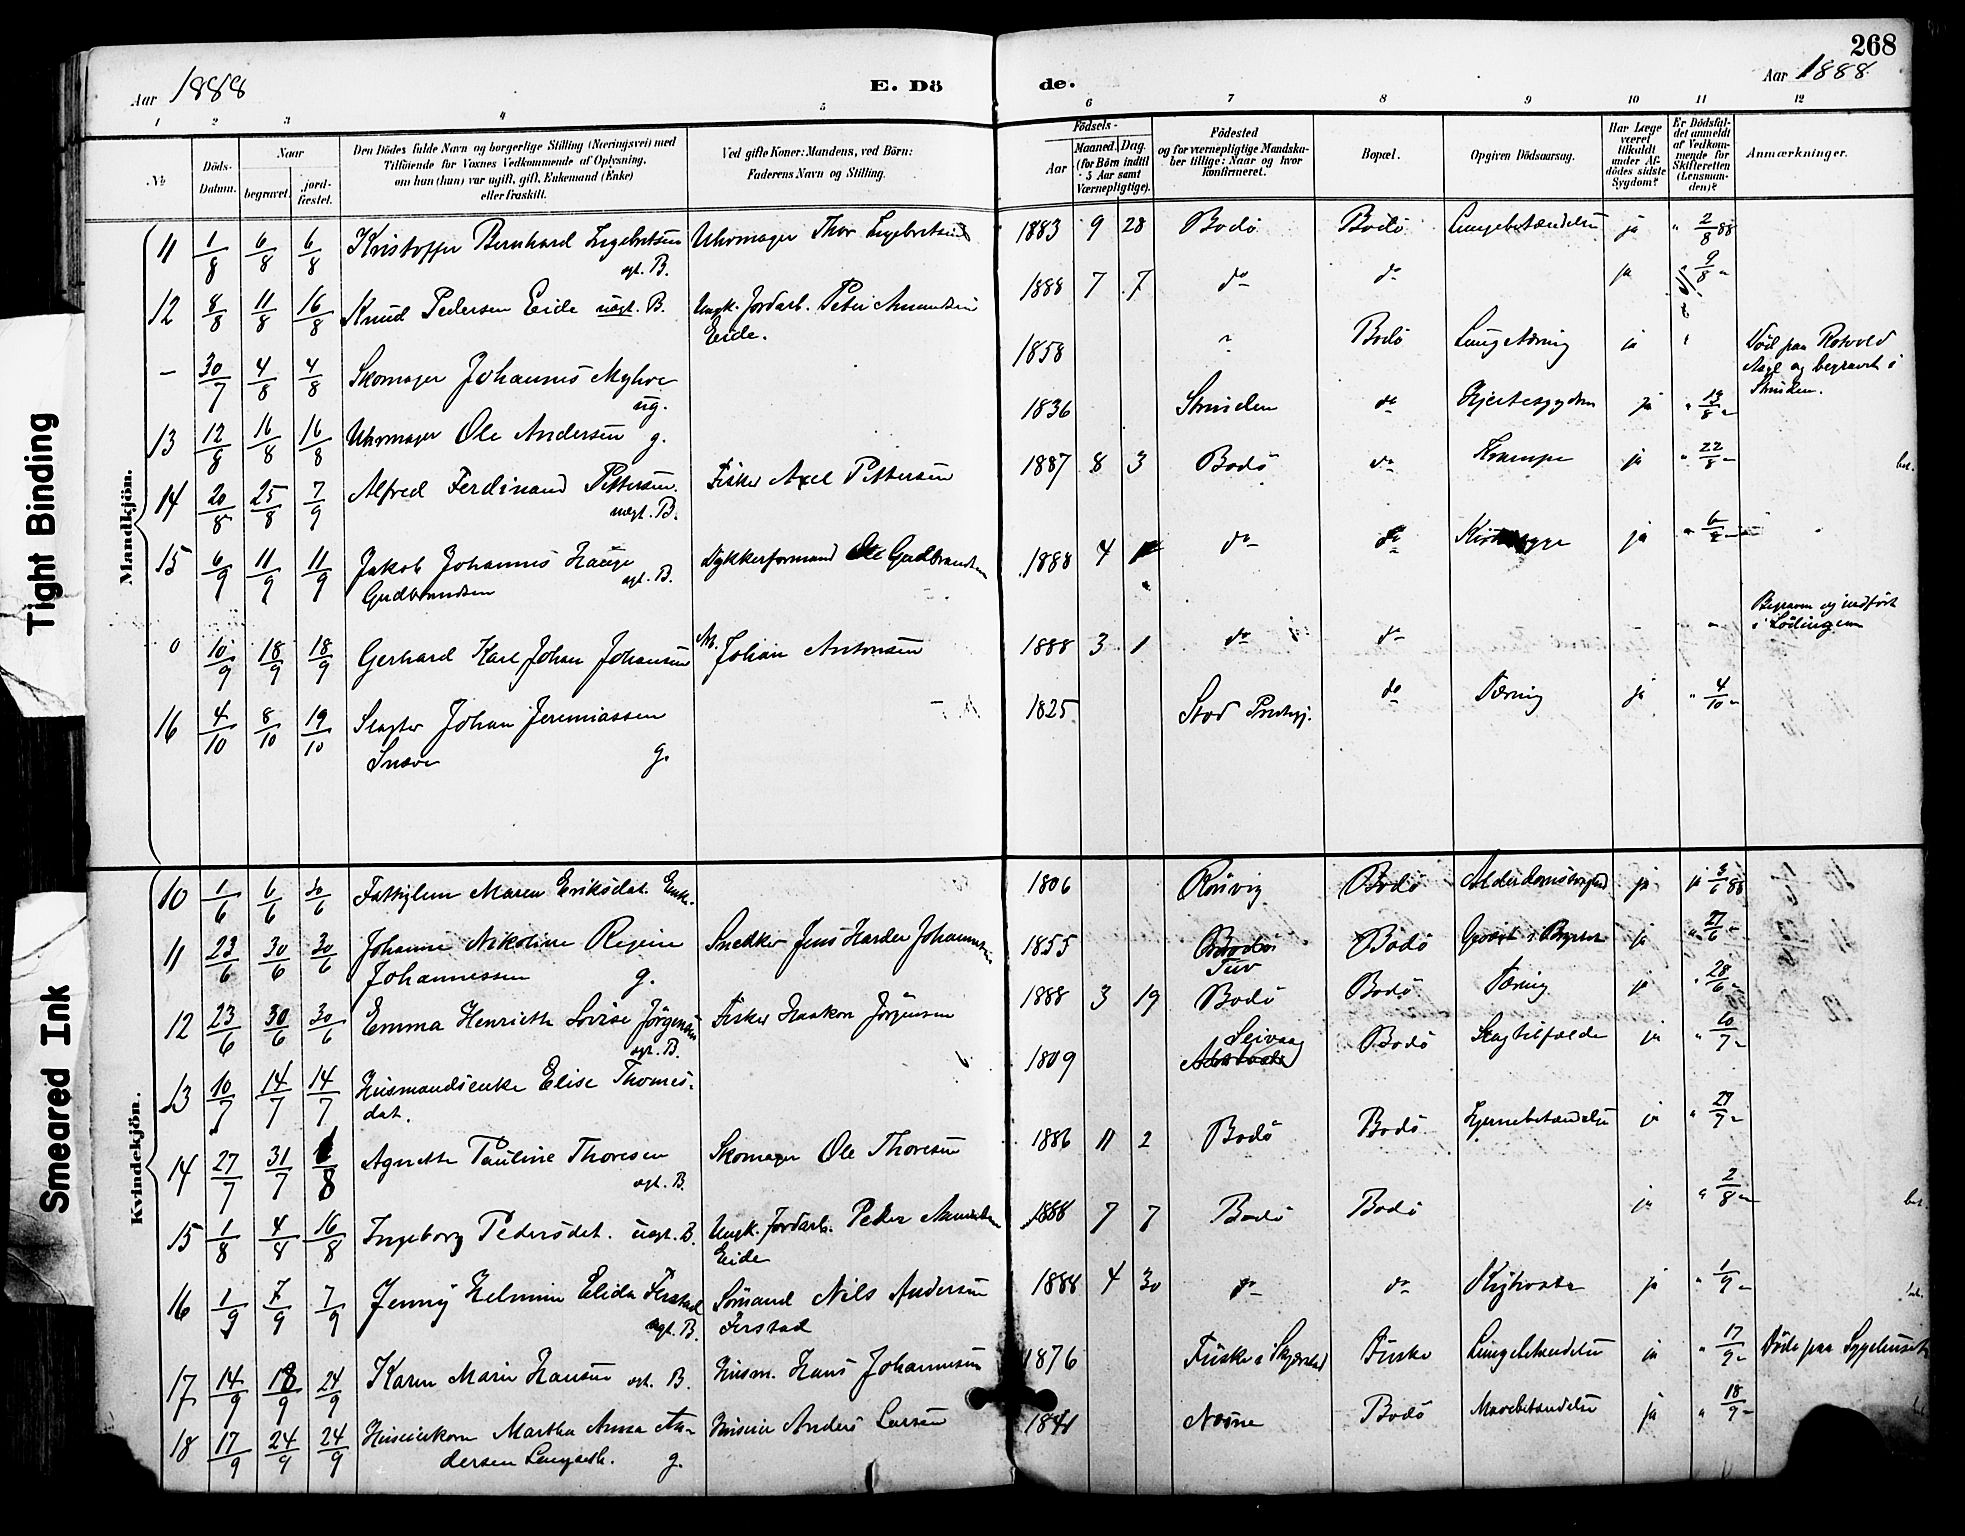 268
Aar 1888
E. Dö
de.
Aar 1888.
1 2 3 4 5 6 7 8 9 10 11 12
No
Döds-Datum.
Naar
begravet.
jordfæstet.
Den Dödes fulde Navn og borgerlige Stilling (Næringsvei) med
Tilföiende for Voxnes Vedkommende af Oplysning,
om han (hun) var ugift, gift, Enkemand (Enke)
eller fraskilt.
Ved gifte Koner: Mandens, ved Börn:
Faderens Navn og Stilling.
Födsels-
Aar
Maaned. Dag.
(for Börn indtil
5 Aar samt
Værnepligtige).
Födested
og for værnepligtige Mandskaber tillige: Naar og hvor
konfirmeret.
Bopæl.
Opgiven Dödsaarsag.
Har Læge
været
tilkaldt
under Afdödes sidste
Sygdom?
Er Dödsfaldet anmeldt
af Vedkommende for
Skifteretten
(Lensmanden)?
Anmærkninger.
Mandkjön.
11 1/8 6/8 6/8 Kristoffer Bernhard Ingebretsen Uhrmager Thor Ingebretsen 1883 9 28 Bodö Bodö Lungebetændelse ja " 2/8 88
ægt. B.
12 8/8 11/8 16/8 Knud Pedersen Eide uægt. B. Ungk. Jordarb. Peter Amundsen 1888 7 7 do do ja 9/8
Eide.
– 30/7 4/8 4/8 Skomager Johannes Myhre 1858 " Bodö Lungetæring ja " Död paa Rotvold
ug. Asyl og begravet i
Strinden.
13 12/8 16/8 16/8 Uhrmager Ole Andersen g. 1836 Strinden do Hjertesygdom ja " 13/8
14 20/8 25/8 7/9 Alfred Ferdinand Pettersen Fisker Axel Pettersen 1887 8 3 Bodö do Krampe ja " 22/8
uægt. B.
15 6/9 11/9 11/9 Jakob Johannes Hauge Dykkerformand Ole Gudbrandsen 1888 4 do do ja
Gudbrandsen ægt. B.
0 10/9 18/9 18/9 Gerhard Karl Johan Johansen Johan Antonsen 1888 3 1 do do – " Begraven og indfört
i Lödingen
16 4/10 8/10 19/10 Slagter Johan Jeremiassen 1825 Stod Prestegj. do Tæring ja " 4/10
Snasen g.
Kvindekjön.
10 1/6 6/6 30/6 Fattiglem Maren Eriksdat. Enke. 1806 Rösvig Bodö Alderdomssvaghed ja ja 3/6 88
11 23/6 30/6 30/6 Johanne Nikoline Regine Snedker Jens Harder Johannessen 1855 Bodö Bodö ja " 27/6
Johannessen g. Tuv
12 23/6 30/6 30/6 Emma Henriette Lovise Jörgensen Fisker Haakon Jörgensen 1888 3 19 Bodö Bodö Tæring ja " 28/6
ægt. B.
13 10/7 14/7 14/7 Husmandsenke Elise Thomes- 1809 Seivaag Bodö Slagtilfælde ja " 10/7
dat.
14 27/7 31/7 8 Agnethe Pauline Thoresen Skomager Ole Thoresen 1886 11 2 Bodö Bodö Hjernebetændelse ja " 27/7
ægt. B.
15 1/8 4/8 16/8 Ingeborg Pedersdat. uægt. B. Ungk. Jordarb. Peder Amundsen 1888 7 7 Bodö Bodö ja " 2/8
Eide
16 1/9 7/9 7/9 Jenny Helmine Elida Ferstad Sömand Nils Andersen 1888 4 30 do do Kighoste ja " 1/9
ægt. B. Ferstad
17 14/9 18/9 24/9 Karen Marie Hansen ægt. B. Husm. Hans Johannesen 1876 Fuske i Skjerstad Fuske Lungebetændelse ja " 17/9 Döde paa Sygehuset
18 17/9 24/9 24/9 Huseierkone Martha Anna An- Huseier Anders Larsen 1841 Nesne Bodö Mavebetændelse ja " 18/9
dersen Langseth. g.
Tight Binding
Smeared Ink